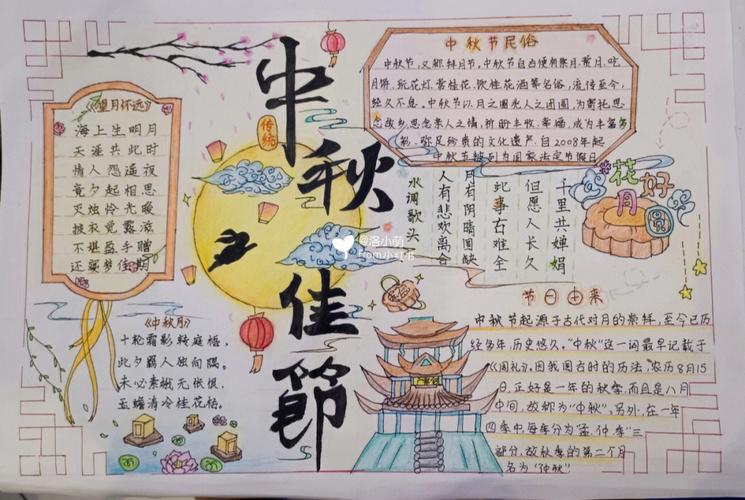 中秋佳节
传统
《望月怀远》
海上生明月
天涯共此时
情人怨遥夜
竟夕起相思
灭烛怜光暖
披衣觉露滋
不堪盈手赠
还寝梦佳期
《中秋月》
十轮霜影转庭梧，
此夕羁人独向隅。
未必素娥无怅恨，
玉蟾清冷桂花孤。
中秋节民俗
中秋节，又称拜月节，中秋节自古便有祭月、赏月、吃
月饼、玩花灯、赏桂花、饮桂花酒等名俗，流传至今，
经久不息。中秋节以月之圆兆人之团圆，为寄托思
念故乡，思念亲人之情，祈盼丰收、幸福，成为丰富多
彩、弥足珍贵的文化遗产，自2008年起
中秋节被列为国家法定节假日
千里共婵娟
但愿人长久
此事古难全
月有阴晴圆缺
人有悲欢离合
水调歌头
花好月圆
@洛小萌
From小红书
节日由来
中秋节起源于古代对月的崇拜，至今已历
经多年，历史悠久，“中秋”这一词最早记载于
《周礼》，因我国古时的历法，农历8月15
日，正好是一年的秋季，而且是八月
中间，故称为“中秋”。另外，在一年
四季中每季分为“孟、仲、季”三
部分，故秋季的第二个月
名为“仲秋”